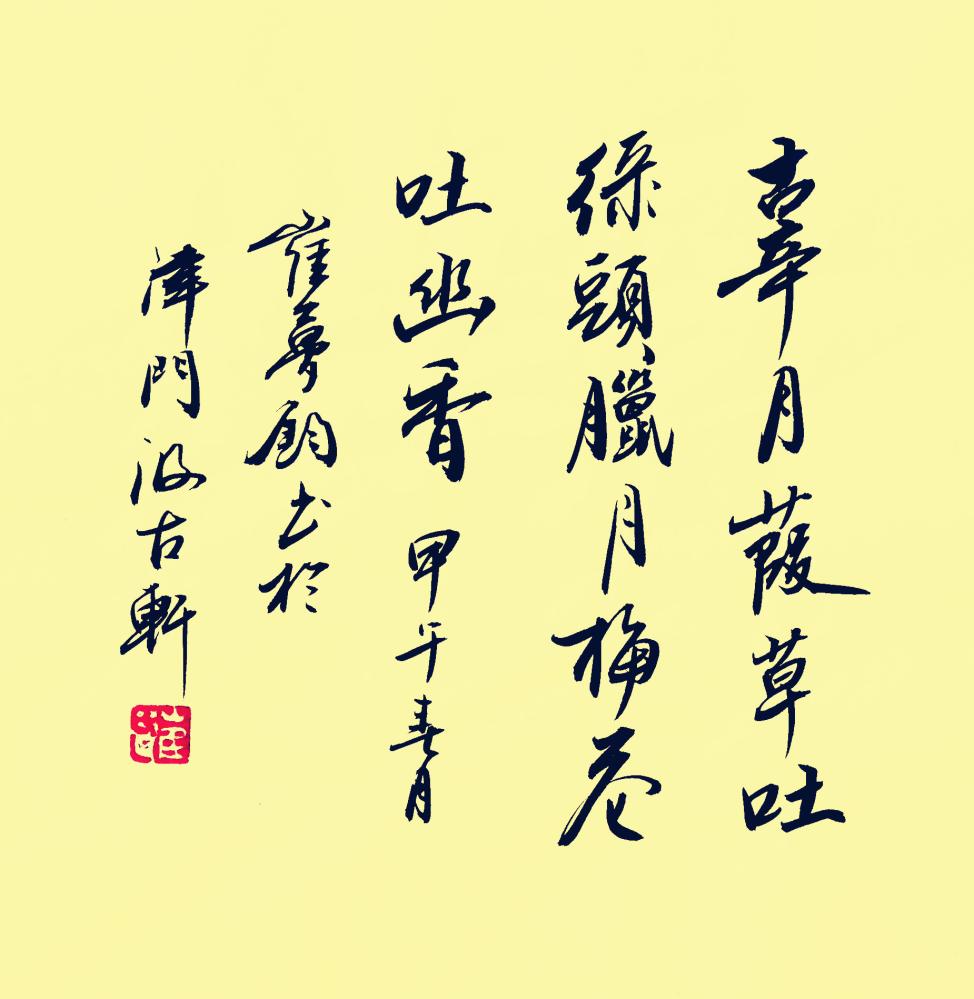 辜月葭草吐
綠頭臘月梅花
吐幽香 甲午春月
崔夢鈞书於
津門汲古軒